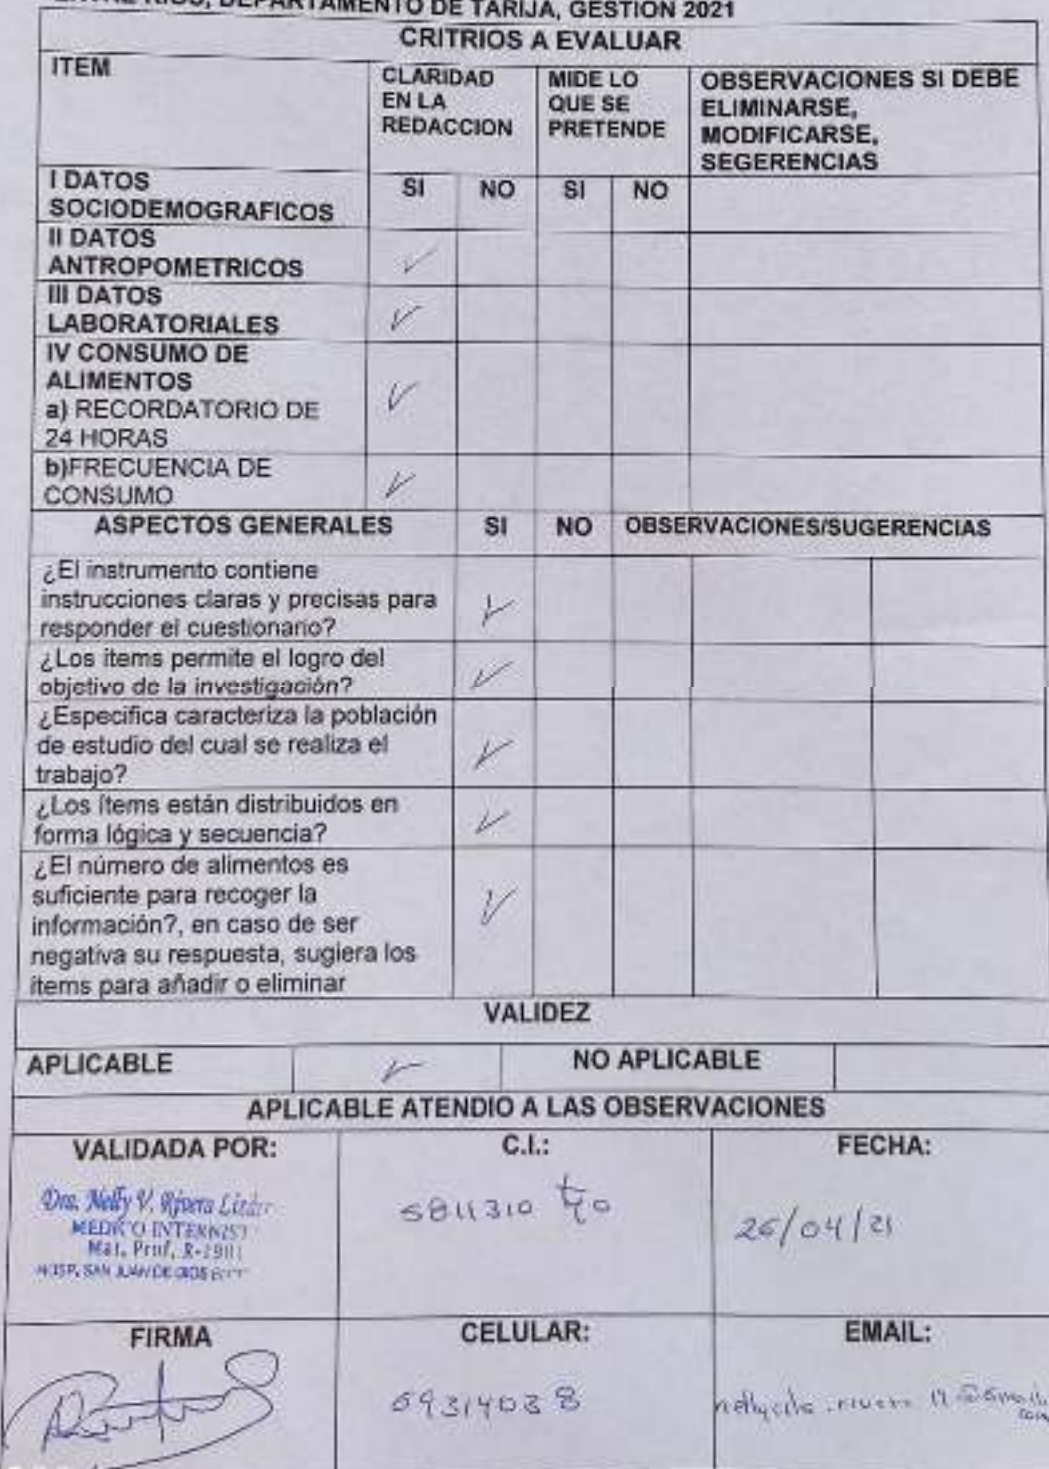 ENTRE RIOS, DEPARTAMENTO DE TARIJA, GESTION 2021
CRITRIOS A EVALUAR
ITEM
CLARIDAD EN LA REDACCION
MIDE LO QUE SE PRETENDE
OBSERVACIONES SI DEBE ELIMINARSE, MODIFICARSE, SEGERENCIAS
I DATOS SOCIODEMOGRAFICOS
SI NO SI NO
II DATOS
ANTROPOMETRICOS ✓
III DATOS
LABORATORIALES ✓
IV CONSUMO DE
ALIMENTOS
a) RECORDATORIO DE ✓
24 HORAS
b)FRECUENCIA DE
CONSUMO ✓
ASPECTOS GENERALES SI NO OBSERVACIONES/SUGERENCIAS
¿El instrumento contiene
instrucciones claras y precisas para ✓
responder el cuestionario?
¿Los items permite el logro del
objetivo de la investigación? ✓
¿Especifica caracteriza la población
de estudio del cual se realiza el ✓
trabajo?
¿Los ítems están distribuidos en
forma lógica y secuencia? ✓
¿El número de alimentos es
suficiente para recoger la ✓
información?, en caso de ser
negativa su respuesta, sugiera los
ítems para añadir o eliminar
VALIDEZ
APLICABLE ✓ NO APLICABLE
APLICABLE ATENDIO A LAS OBSERVACIONES
VALIDADA POR: C.I.: FECHA:
Dra. Nelly V. Rivera
MEDICO INTERNIST
Mat. Prof.
HOSP. SAN JUAN DE DIOS
5811310
26/04/21
FIRMA CELULAR: EMAIL:
69314038